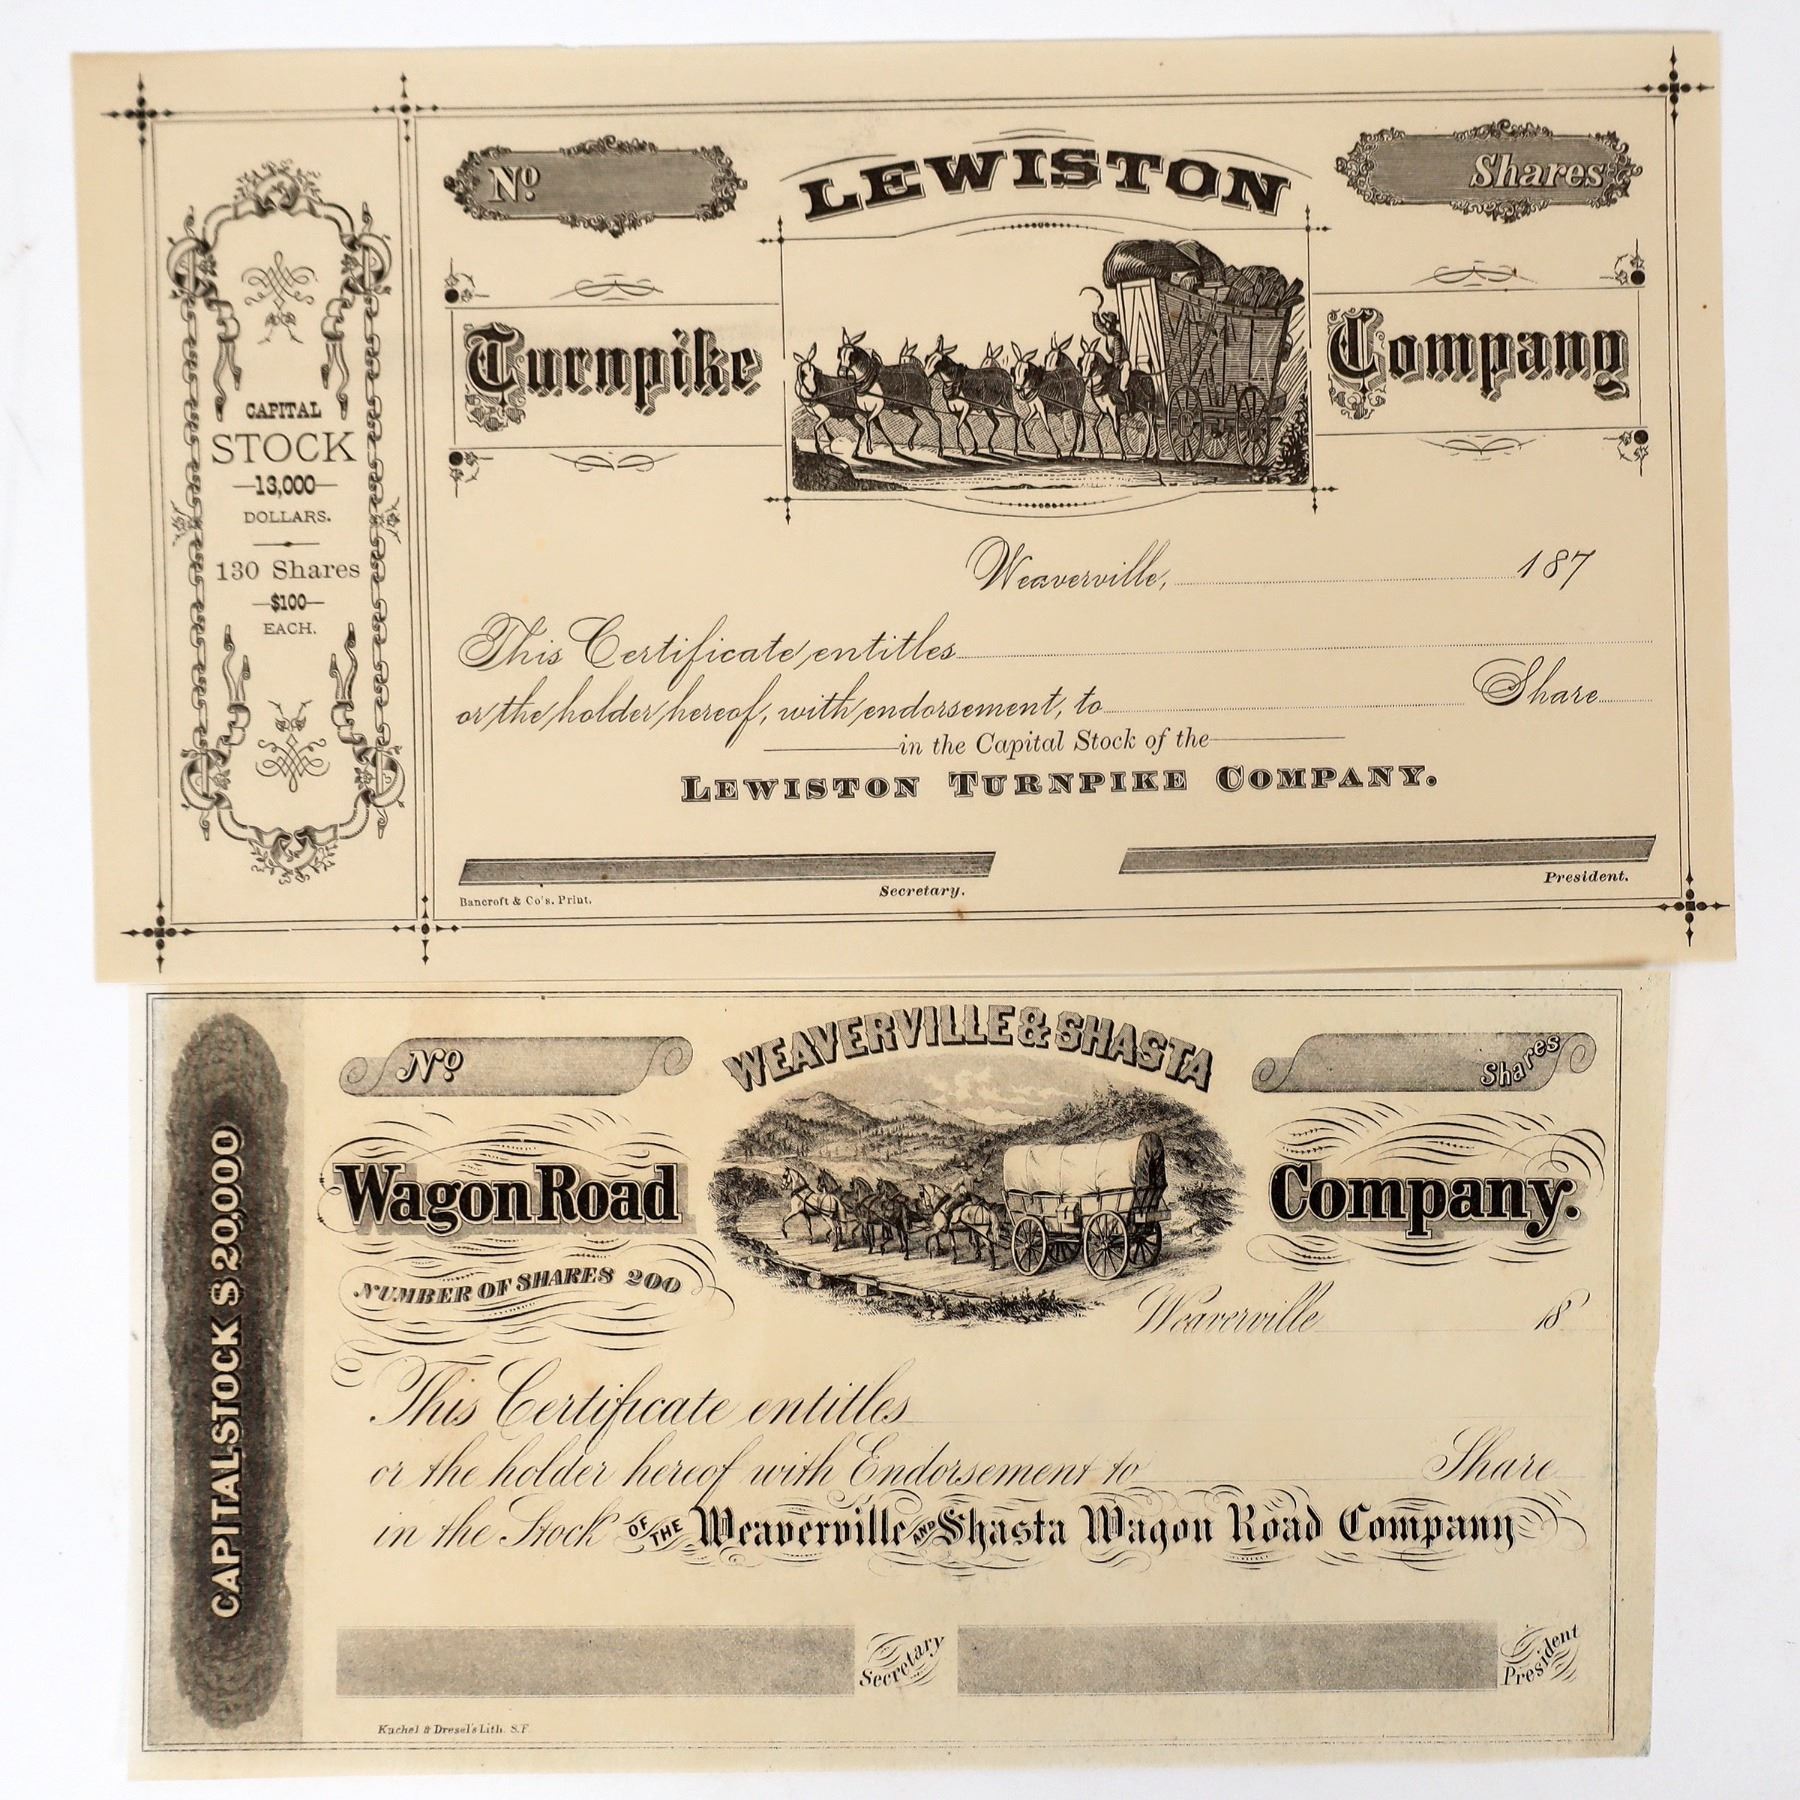 No.
LEWISTON
Shares
Turnpike Company
CAPITAL
STOCK
—13,000—
DOLLARS.
130 Shares
—$100—
EACH.
Weaverville, 187
This Certificate entitles
or the holder hereof, with endorsement, to Share
in the Capital Stock of the
LEWISTON TURNPIKE COMPANY.
Secretary.
President.
Bancroft & Co's. Print.
CAPITAL STOCK $20,000
No
WEAVERVILLE & SHASTA
Shares
Wagon Road Company.
NUMBER OF SHARES 200
Weaverville 18
This Certificate entitles
or the holder hereof with Endorsement to Share
in the Stock OF THE Weaverville AND Shasta Wagon Road Company
Secretary
President
Kuchel & Dresel's Lith. S.F.